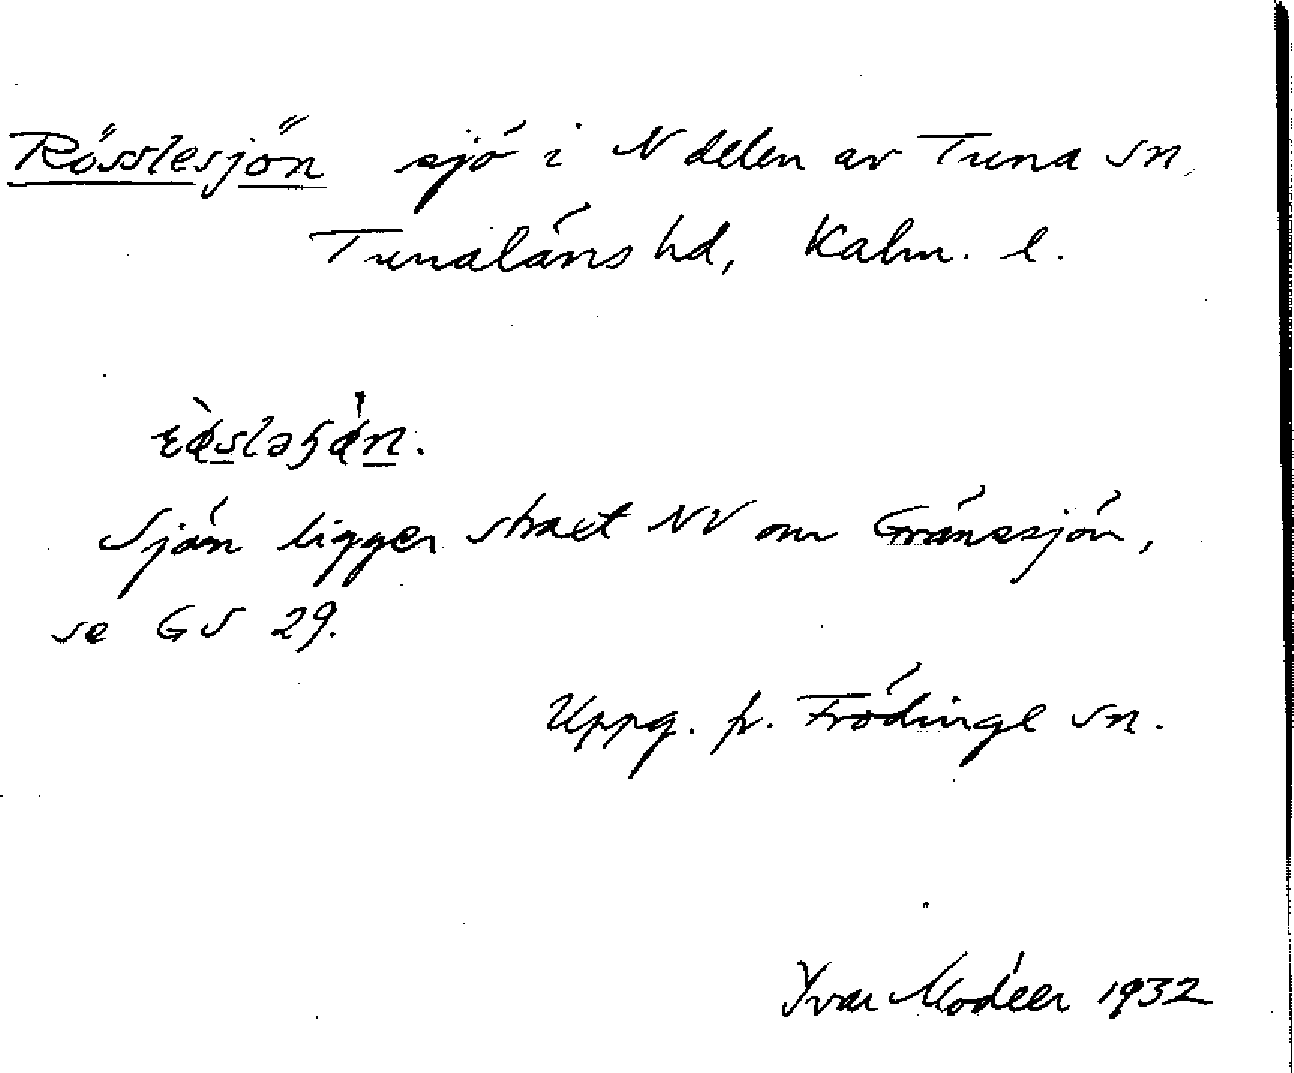 Rösslesjön sjö i N delen av Tuna sn,
Tunaläns hd, Kalm. l.
Sjön ligger straxt NV om Gränssjön,
se GS 29.
Uppg. fr. Frödinge sn.
Yvar Modéer 1932